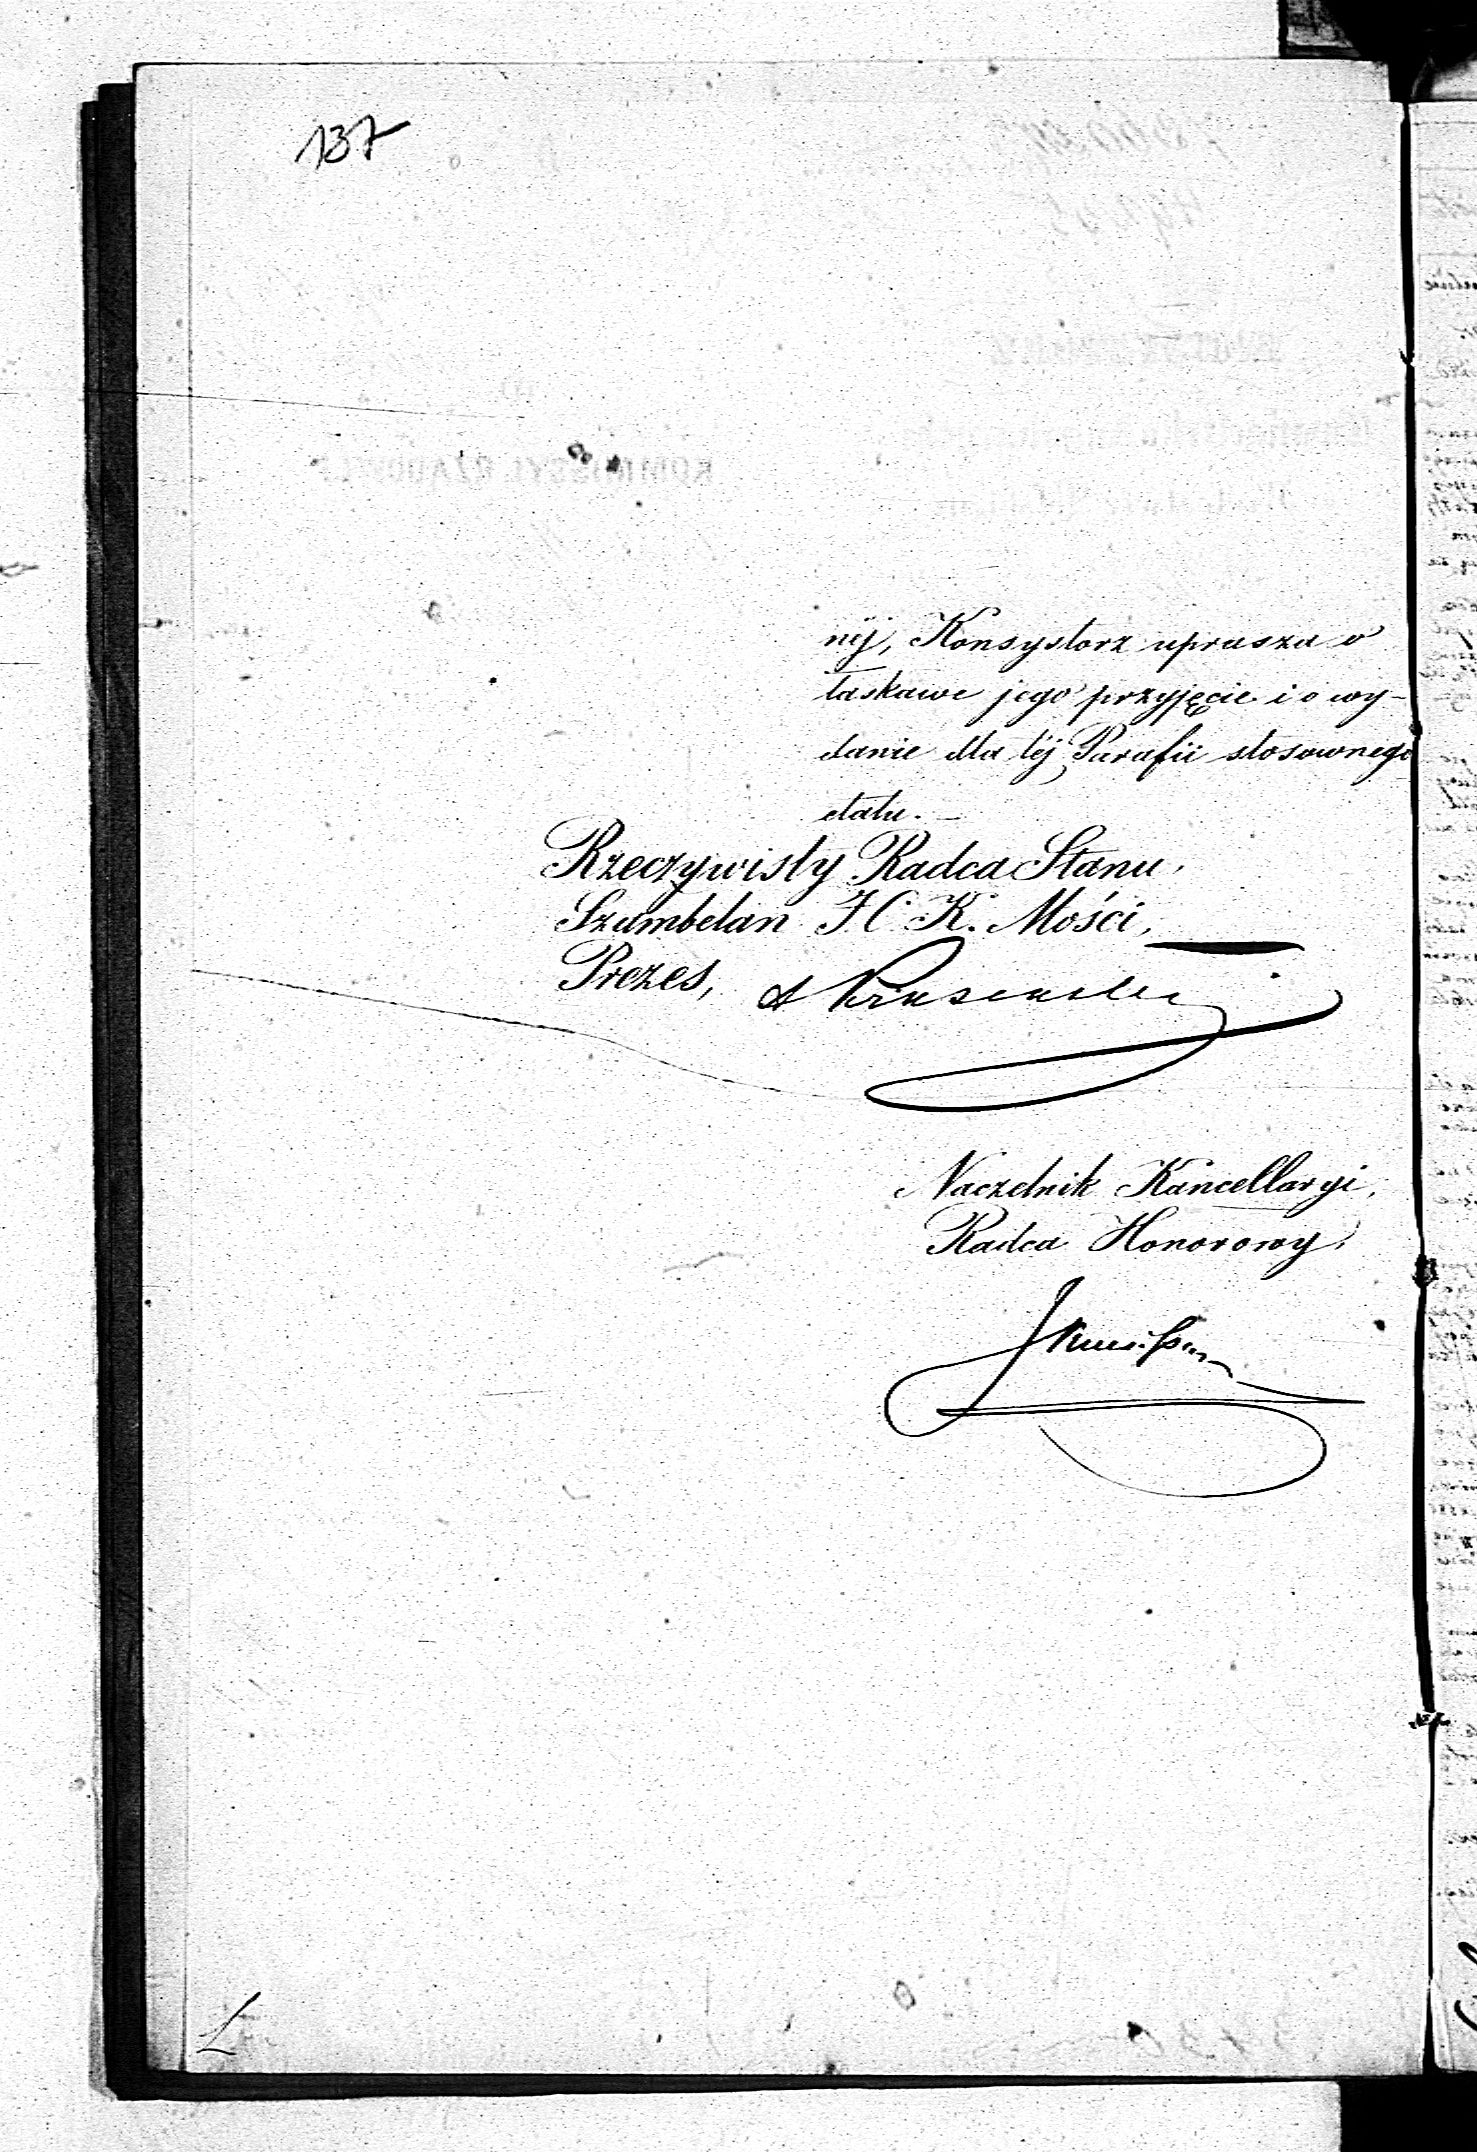 137
nij, Konsystorz uprasza o
łaskawe jego przyjęcie i o wy-
danie dla téj Parafii stosownego
etatu. —
Rzeczywisty Radca Stanu,
Szambelan J C K. Mości,
Prezes,
Naczelnik Kancellaryi,
Radca Honorowy,
L